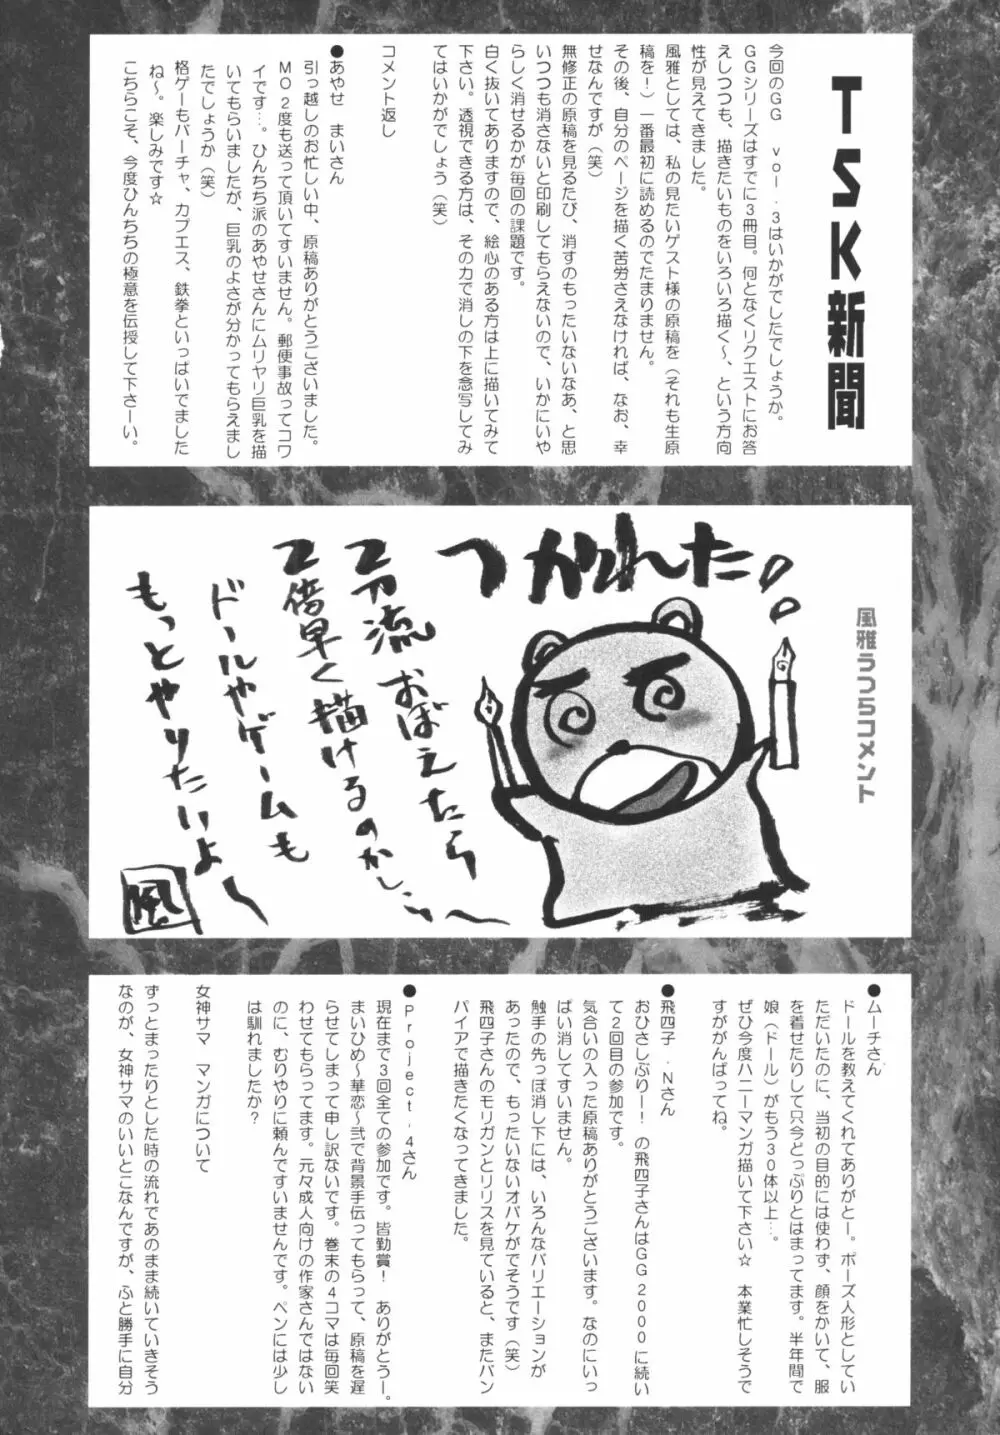 TSK新聞
今回のGG vol.3はいかがでしたでしょうか。
GGシリーズはすでに3冊目。何となくリクエストにお答
えしつつも、描きたいものをいろいろ描く〜、という方向
性が見えてきました。
風雅としては、私の見たいゲスト様の原稿を(それも生原
稿を!)一番最初に読めるのでたまりません。
その後、自分のページを描く苦労さえなければ、なお、幸
せなんですが(笑)
無修正の原稿を見るたび、消すのもったいないなあ、と思
いつつも消さないと印刷してもらえないので、いかにいや
らしく消せるかが毎回の課題です。
白く抜いてありますので、絵心のある方は上に描いてみて
下さい。透視できる方は、その力で消しの下を念写してみ
てはいかがでしょう(笑)
コメント返し
●あやせ まいさん
引っ越しのお忙しい中、原稿ありがとうございました。
MO2度も送って頂いてすいません。郵便事故ってコワ
イです…。ひんちち派のあやせさんにムリヤリ巨乳を描
いてもらいましたが、巨乳のよさが分かってもらえまし
たでしょうか(笑)
格ゲーもバーチャ、カプエス、鉄拳といっぱいでました
ね〜。楽しみです☆
こちらこそ、今度ひんちちの極意を伝授して下さーい。
風雅うつらコメント
つかれた。。
2刀流おぼえたら
2倍早く描けるのかしら〜
ドールやゲームも
もっとやりたいよ〜
風
●ムーチさん
ドールを教えてくれてありがとー。ポーズ人形としてい
ただいたのに、当初の目的には使わず、顔をかいて、服
を着せたりして只今どっぷりとはまってます。半年間で
娘(ドール)がもう30体以上…。
ぜひ今度ハニーマンガ描いて下さい☆ 本業忙しそうで
すががんばってね。
●飛四子.Nさん
おひさしぶりー!の飛四子さんはGG2000に続い
て2回目の参加です。
気合いの入った原稿ありがとうございます。なのにいっ
ぱい消してすいません。
触手の先っぽ消し下には、いろんなバリエーションが
あったので、もったいないオバケがでそうです(笑)
飛四子さんのモリガンとリリスを見ていると、またバン
パイアで描きたくなってきました。
●Project.4さん
現在まで3回全ての参加です。皆勤賞! ありがとうー。
まいひめ〜華恋〜弐で背景手伝ってもらって、原稿を遅
らせてしまって申し訳ないです。巻末の4コマは毎回笑
わせてもらってます。元々成人向けの作家さんではない
のに、むりやりに頼んですいませんです。ペンには少し
は馴れましたか?
女神サマ マンガについて
ずっとまったりとした時の流れであのまま続いていきそう
なのが、女神サマのいいとこなんですが、ふと勝手に自分